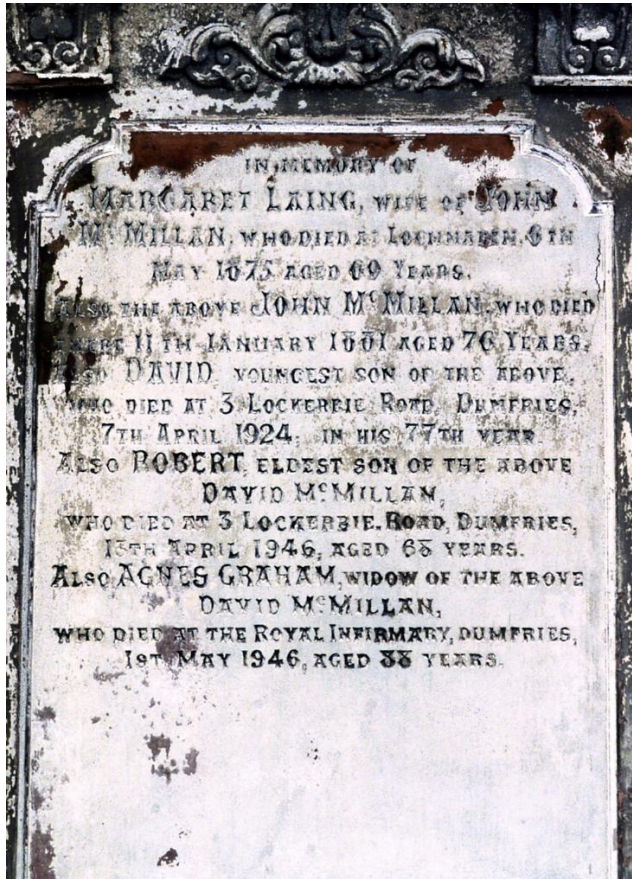 IN MEMORY OF
MARGARET LAING, WIFE OF JOHN
McMILLAN, WHO DIED AT LOCHMABEN, 6TH
MAY 1875 AGED 69 YEARS.
ALSO THE ABOVE JOHN McMILLAN, WHO DIED
THERE 11TH JANUARY 1881 AGED 76 YEARS.
ALSO DAVID YOUNGEST SON OF THE ABOVE,
WHO DIED AT 3 LOCKERBIE ROAD, DUMFRIES,
7TH APRIL 1924, IN HIS 77TH YEAR.
ALSO ROBERT, ELDEST SON OF THE ABOVE
DAVID McMILLAN,
WHO DIED AT 3 LOCKERBIE ROAD, DUMFRIES,
APRIL 1946, AGED YEARS.
ALSO AGNES GRAHAM, WIDOW OF THE ABOVE
DAVID McMILLAN,
WHO DIED AT THE ROYAL INFIRMARY, DUMFRIES,
1ST MAY 1946, AGED 88 YEARS.